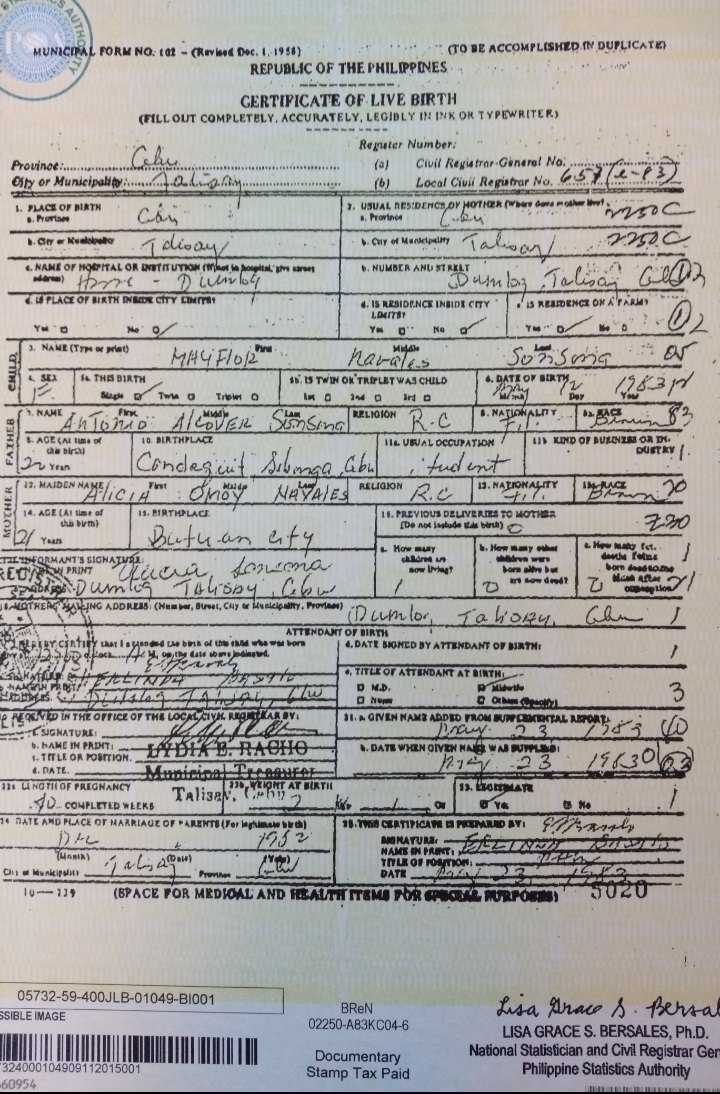 MUNICIPAL FORM NO. 102 — (Revised Dec. 1, 1958) (TO BE ACCOMPLISHED IN DUPLICATE)
REPUBLIC OF THE PHILIPPINES
CERTIFICATE OF LIVE BIRTH
(FILL OUT COMPLETELY, ACCURATELY, LEGIBLY IN INK OR TYPEWRITER)
Register Number:
Province: Cebu (a) Civil Registrar-General No.
City or Municipality: Talisay (b) Local Civil Registrar No. 657 (e-83)
1. PLACE OF BIRTH 2. USUAL RESIDENCE OF MOTHER (Where does mother live?)
a. Province Cebu a. Province Cebu 2250C
b. City or Municipality Talisay b. City of Municipality Talisay 2250C
c. NAME OF HOSPITAL OR INSTITUTION (If not in hospital, give street address) Home - Dumlog b. NUMBER AND STREET Dumlog, Talisay Cebu
d. IS PLACE OF BIRTH INSIDE CITY LIMITS? d. IS RESIDENCE INSIDE CITY LIMITS? e. IS RESIDENCE ON A FARM?
Yes No Yes No Yes No
CHILD
3. NAME (Type or print) First Middle Last
MAYFLOR Navales Sonsona 05
4. SEX 5a. THIS BIRTH 5b. IS TWIN OR TRIPLET WAS CHILD 6. DATE OF BIRTH
Single Twin Triplet 1st 2nd 3rd May 12 1983
Month Day Year
FATHER
7. NAME First Middle Last RELIGION 8. NATIONALITY 8a. RACE
Antonio ALCOVER Sonsona R.C Fil. Brown 83
9. AGE (At time of this birth) 10. BIRTHPLACE 11a. USUAL OCCUPATION 11b. KIND OF BUSINESS OR INDUSTRY
Years Sibonga, Cebu student
MOTHER
12. MAIDEN NAME First Middle Last RELIGION 13. NATIONALITY 13a. RACE
ALICIA OMOY NAVALES R.C Fil. Brown 20
14. AGE (At time of this birth) 15. BIRTHPLACE 16. PREVIOUS DELIVERIES TO MOTHER (Do not include this birth) 0
21 Years Butuan City
a. How many children are now living? b. How many other children were born alive but are now dead? c. How many fetal deaths
1 0 0 21
17. INFORMANT'S SIGNATURE: Alicia Sonsona
NAME IN PRINT
ADDRESS: Dumlog Talisay, Cebu
18. MOTHER'S MAILING ADDRESS: (Number, Street, City or Municipality, Province) Dumlog, Talisay, Cebu 1
ATTENDANT OF BIRTH
I HEREBY CERTIFY that I attended the birth of this child who was born d. DATE SIGNED BY ATTENDANT OF BIRTH: 1
M. on the date above indicated.
SIGNATURE: e. TITLE OF ATTENDANT AT BIRTH:
NAME IN PRINT: ERLINDA BASTO M.D. Midwife 3
ADDRESS: Dumlog Talisay, Cebu Nurse Others (Specify)
RECEIVED IN THE OFFICE OF THE LOCAL CIVIL REGISTRAR BY: 21. a. GIVEN NAME ADDED FROM SUPPLEMENTAL REPORT:
a. SIGNATURE: May 23, 1983 40
b. NAME IN PRINT: LYDIA E. RACHO b. DATE WHEN GIVEN NAME WAS SUPPLIED:
c. TITLE OR POSITION: Municipal Treasurer May 23 1983
d. DATE Talisay, Cebu
22a. LENGTH OF PREGNANCY 22b. WEIGHT AT BIRTH 23. LEGITIMATE
40 COMPLETED WEEKS Yes No 1
24. DATE AND PLACE OF MARRIAGE OF PARENTS (For legitimate birth) 25. THIS CERTIFICATE IS PREPARED BY:
Dec 1982 SIGNATURE:
(Month) (Date) (Year) NAME IN PRINT: ERLINDA BASTO
City or Municipality Talisay Province Cebu TITLE OF POSITION:
DATE May 23, 1983
10—119 (SPACE FOR MEDICAL AND HEALTH ITEMS FOR SPECIAL PURPOSES) 5020
05732-59-400JLB-01049-BI001
SSIBLE IMAGE
BReN
02250-A83KC04-6
Documentary
Stamp Tax Paid
Lisa Grace S. Bersal
LISA GRACE S. BERSALES, Ph.D.
National Statistician and Civil Registrar Gen
Philippine Statistics Authority
7324000104909112015001
60954